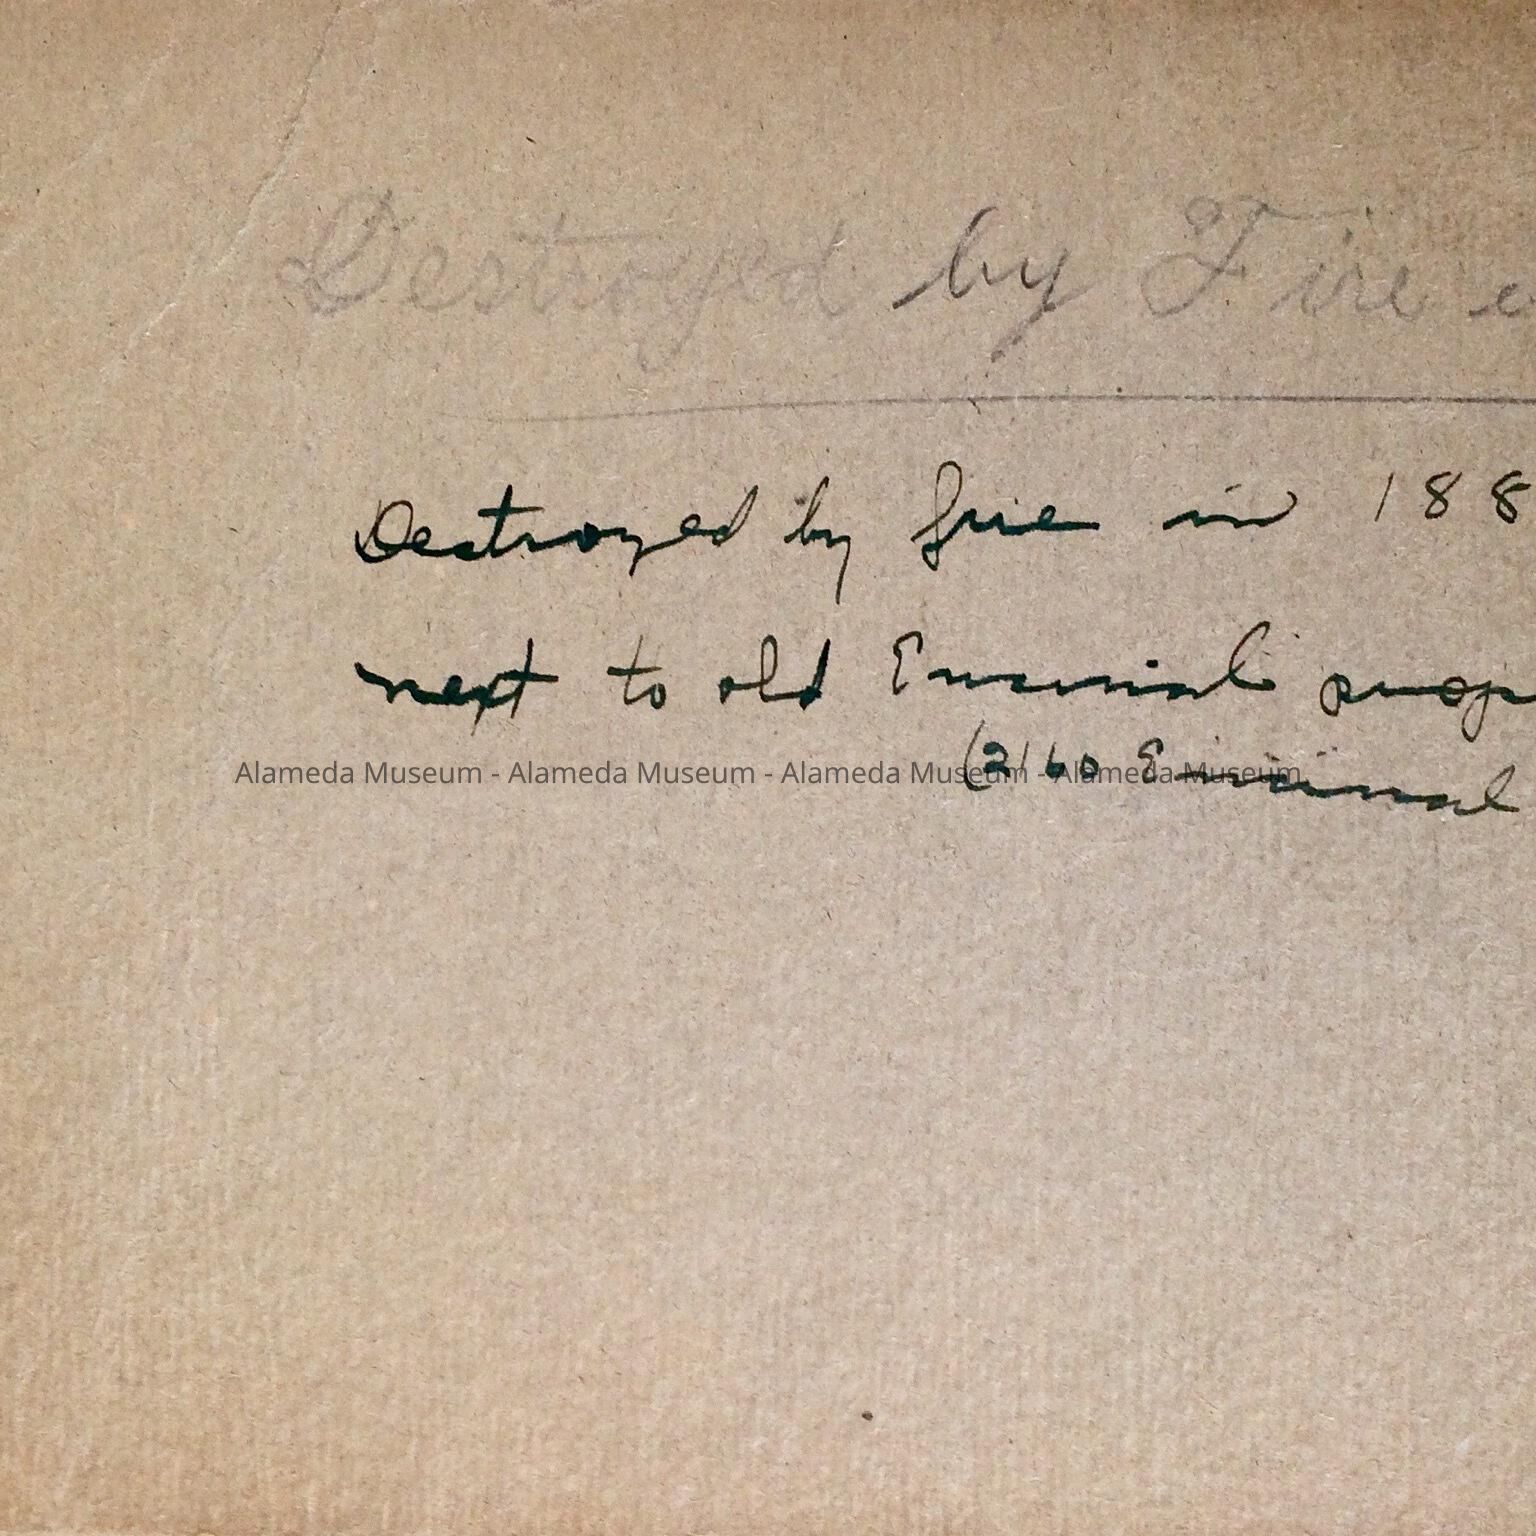 Destroyed by Fire
Destroyed by fire in 188
next to old Encinal prop
(2160 Encinal
Alameda Museum - Alameda Museum - Alameda Museum - Alameda Museum